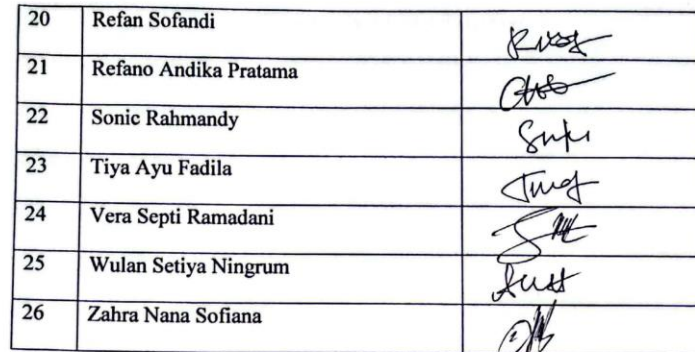 20 Refan Sofandi
21 Refano Andika Pratama
22 Sonic Rahmandy
23 Tiya Ayu Fadila
24 Vera Septi Ramadani
25 Wulan Setiya Ningrum
26 Zahra Nana Sofiana